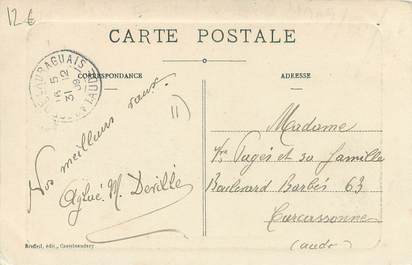 12 €
CARTE POSTALE
CORRESPONDANCE
ADRESSE
Nos meilleurs vœux.
Aglaé. M. Deville
Madame
Vve Pagés et sa famille
Boulevard Barbés 63
Carcassonne
(aude)
31 12
Roudière, édit., Castelnaudary